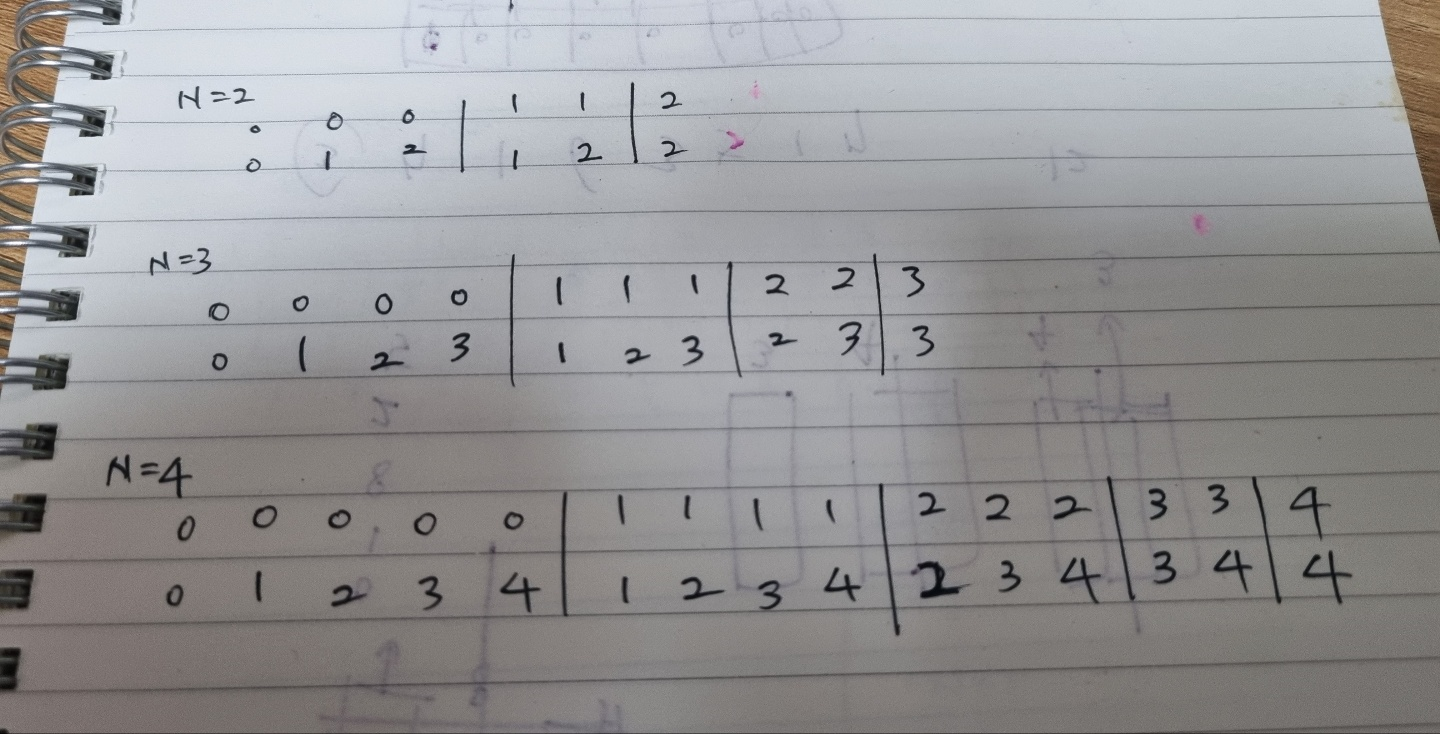 N=2
0 0 0 | 1 1 | 2
0 1 2 | 1 2 | 2
N=3
0 0 0 0 | 1 1 1 | 2 2 | 3
0 1 2 3 | 1 2 3 | 2 3 | 3
N=4
0 0 0 0 0 | 1 1 1 1 | 2 2 2 | 3 3 | 4
0 1 2 3 4 | 1 2 3 4 | 2 3 4 | 3 4 | 4